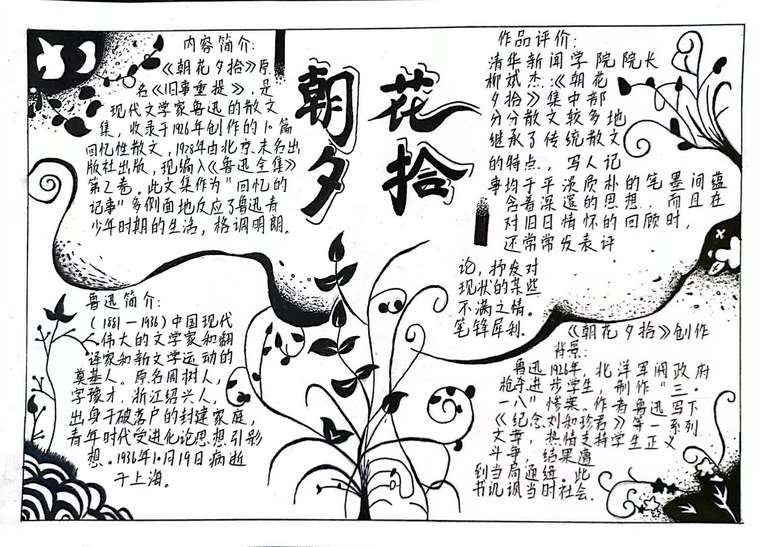 朝花
夕拾
内容简介:
《朝花夕拾》原
名《旧事重提》,是
现代文学家鲁迅的散文
集,收录于1926年创作的10篇
回忆性散文,1928年由北京未名出
版社出版,现编入《鲁迅全集》
第2卷。此文集作为“回忆的
记事”多侧面地反应了鲁迅青
少年时期的生活,格调明朗。
鲁迅简介:
(1881—1936)中国现代
伟大的文学家和翻
译家和新文学运动的
奠基人。原名周树人,
字豫才,浙江绍兴人,
出身于破落户的封建家庭,
青年时代受进化论思想引影
想。1936年10月19日病逝
于上海。
作品评价:
清华新闻学院院长
柳斌杰:《朝花
夕拾》集中部
分分散文较多地
继承了传统散文
的特点,写人记
事均于平淡质朴的笔墨间蕴
含着深邃的思想,而且在
对旧日情怀的回顾时,
还常常发表评
论,抒发对
现状的某些
不满之情。
笔锋犀利.
《朝花夕拾》创作
背景:
鲁迅1926年,北洋军阀政府
枪杀进步学生,制作“三·
一八”惨案。作者鲁迅写下
《纪念刘和珍君》等一系列
文章,热情支持学生正义
斗争,结果遭
到当局通缉.此
书讥讽当时社会.